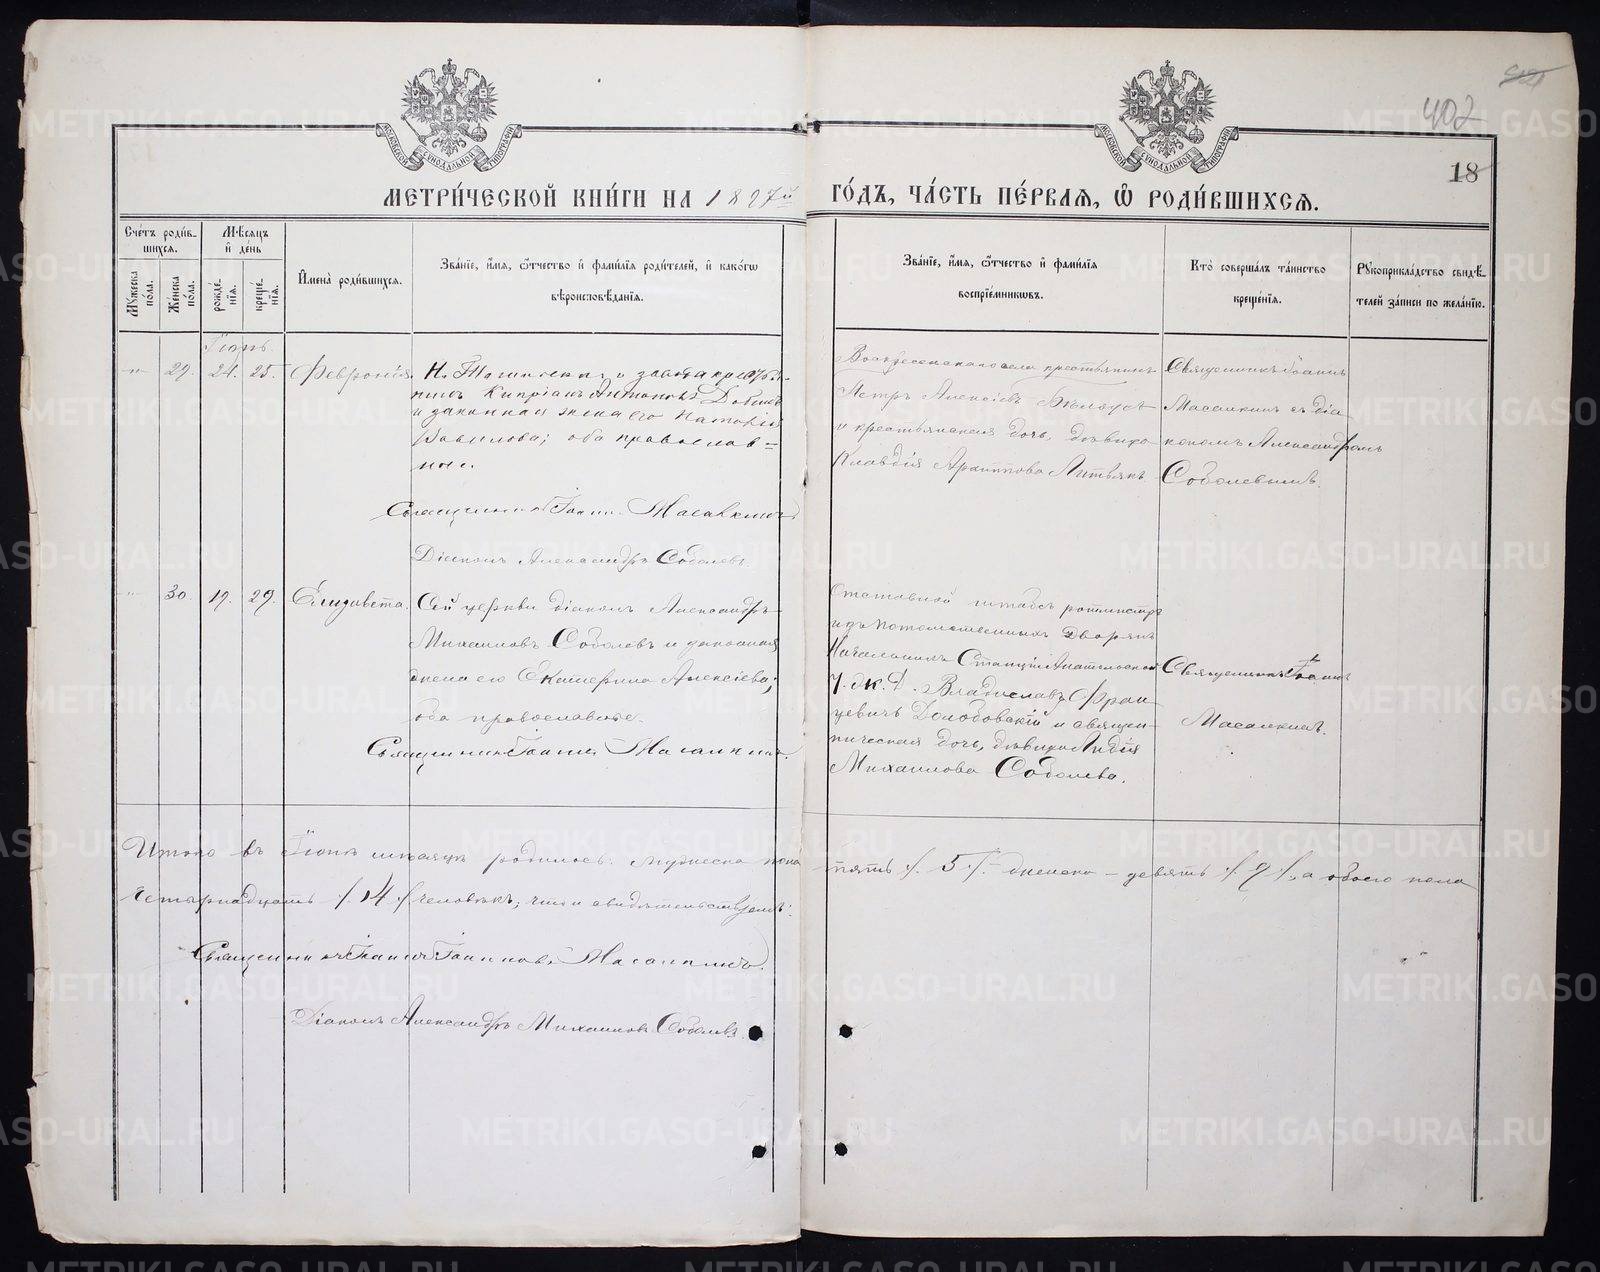 402
18
МЕТРИ́ЧЕСКОЙ КНИ́ГИ НА 1897й ГО́ДЪ, ЧА́СТЬ ПЕ́РВАЯ, Ѿ РОДИ́ВШИХСЯ.
МОСКОВСКОЙ СѴНОДАЛЬНОЙ ТИПОГРАФІИ
МОСКОВСКОЙ СѴНОДАЛЬНОЙ ТИПОГРАФІИ
Сче́тъ роди́в-
шихся.
Мѣ́сяцъ
и҆ де́нь
Мꙋ́жеска по́ла.
Же́нска по́ла.
рожде́-
нїѧ.
креще́-
нїѧ.
И҆мена̀ роди́вшихся.
Зва́нїе, и҆́мя, ѻ҆́тчество и҆ фами́лїя роди́телей, и҆ како́гѡ
вѣроисповѣ́данїя.
Зва́нїе, и҆́мя, ѻ҆́тчество и҆ фами́лїя
воспрїе́мникѡвъ.
Кто̀ соверша́лъ та́инство
креще́нїя.
Рꙋкоприкла́дство свидѣ́-
телей за́писи по жела́нїю.
Іюнь
29. 24. 25. Февронія.
Н. Тагильскаго завода крестья-
нинъ Кипріанъ Антоновъ
и законная жена его Наталія
Вавилова; оба православ-
ные.
Священникъ Іоаннъ Масалкинъ
Діаконъ Александръ Соболевъ
Воскресенскаго села крестьянинъ
Петръ Алексіевъ
и крестьянская дочь, дѣвица
Клавдія
Священникъ Іоаннъ
Масалкинъ съ діа-
кономъ Александромъ
Соболевымъ.
30. 19. 29. Елизавета.
Сей церкви діаконъ Александръ
Михаиловъ Соболевъ и законная
жена его Екатерина Алексіева;
оба православные.
Священникъ Іоаннъ Масалкинъ.
Отставной штабсъ ротмистръ
изъ потомственныхъ дворянъ
Начальникъ Станціи
У. ж. д. Владиславъ Фран-
цевичъ и священ-
ническая дочь, дѣвица Лидія
Михаилова Соболева.
Священникъ Іоаннъ
Масалкинъ.
Итого въ Іюнѣ мѣсяцѣ родилось: мужеска пола пять /. 5 /. женска – девять /. 9 /., а обоего пола
четырнадцать /. 14 ./ человѣкъ; что и свидѣтельствуемъ:
Священникъ Іоаннъ Іоанновъ Масалкинъ.
Діаконъ Александръ Михаиловъ Соболевъ.
METRIKI.GASO-URAL.RU